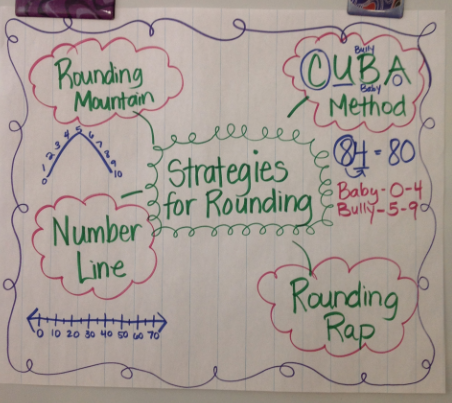 Rounding
Mountain
0 1 2 3 4 5 6 7 8 9 10
Strategies
for Rounding
Bully
CUBA
Baby
Method
84 = 80
Baby-0-4
Bully-5-9
Number
Line
0 10 20 30 40 50 60 70
Rounding
Rap